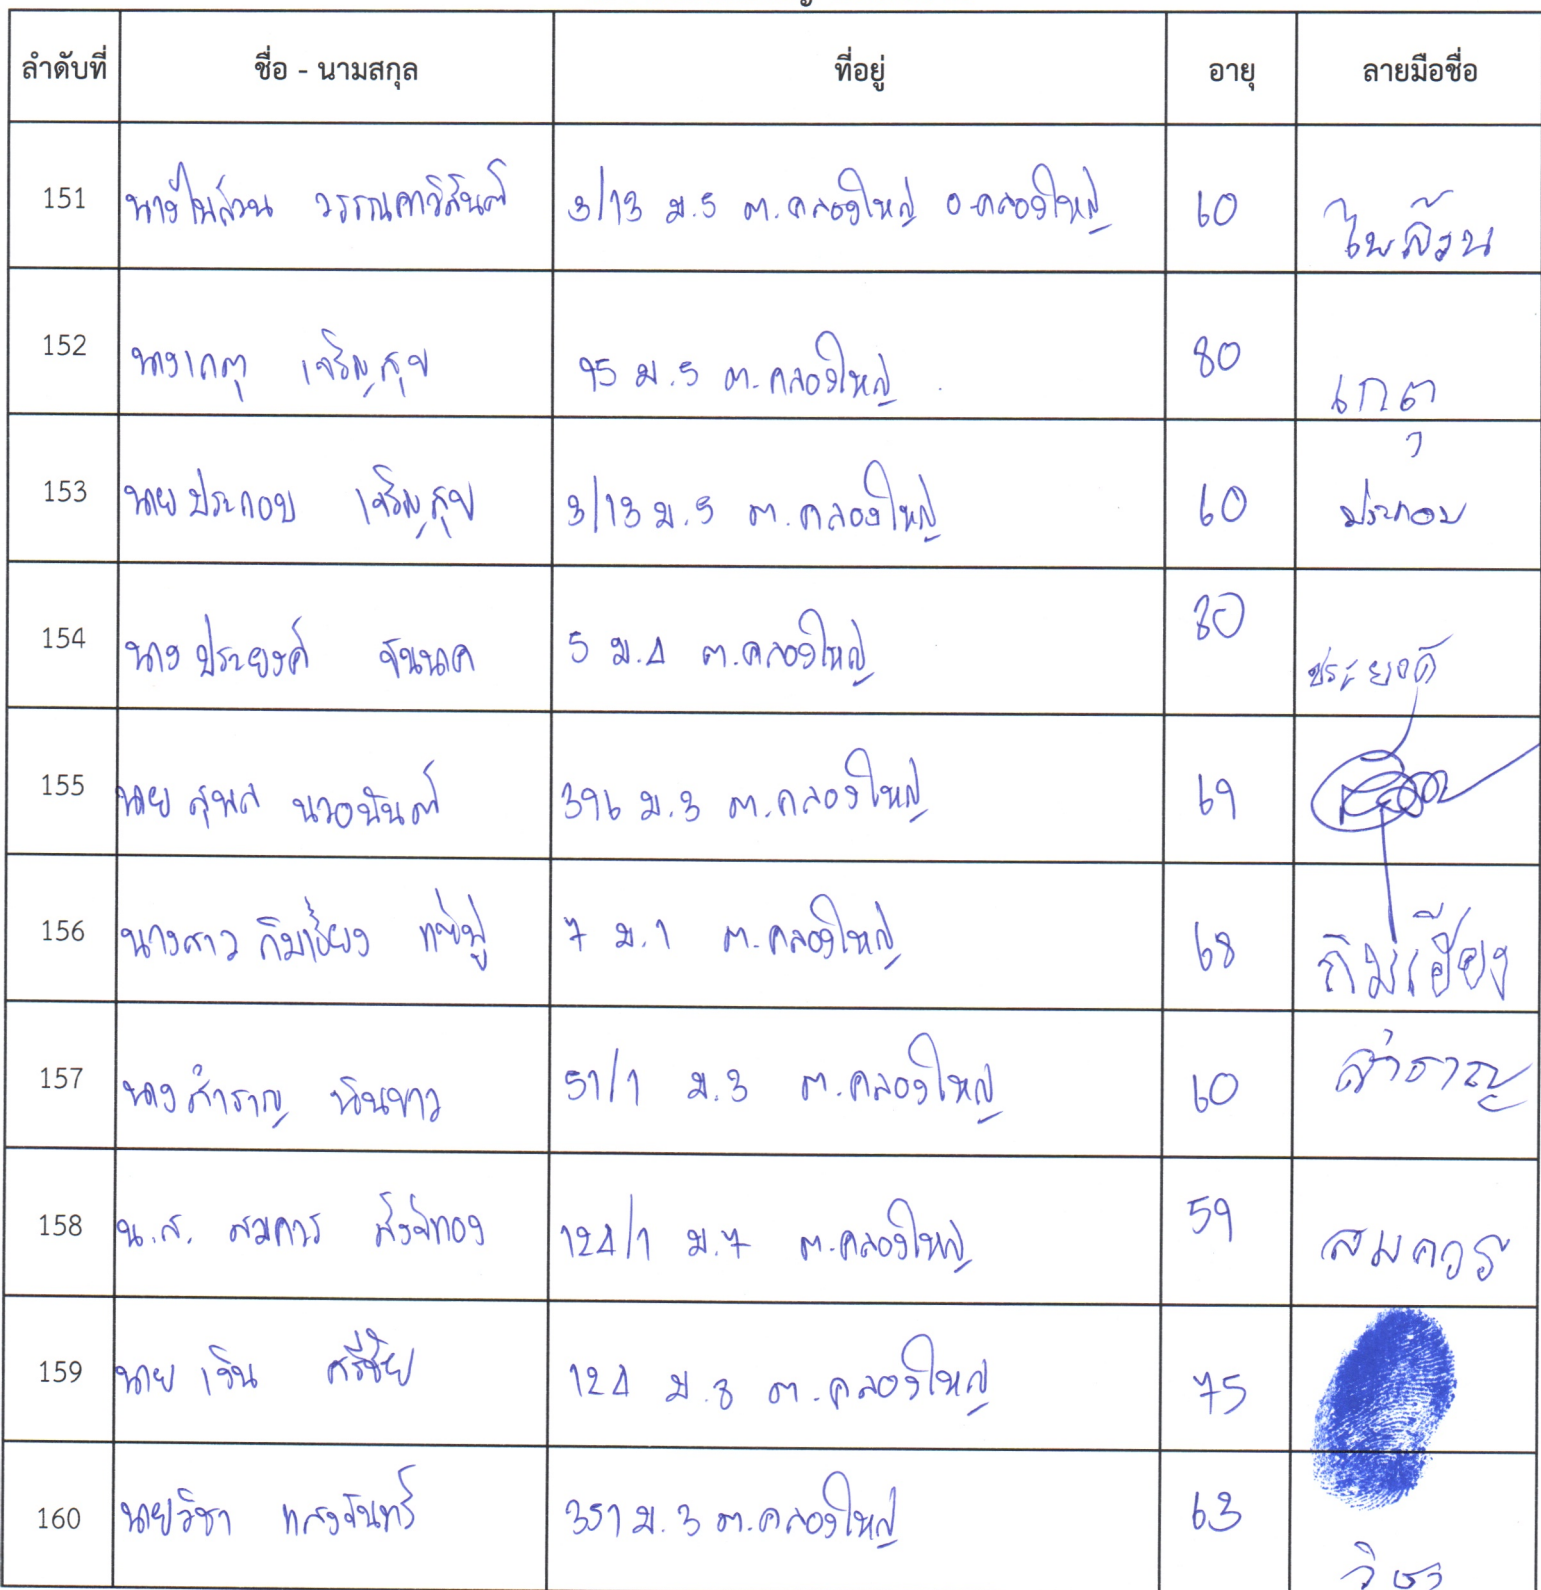 ลำดับที่ ชื่อ - นามสกุล ที่อยู่ อายุ ลายมือชื่อ
151 นางไพล้วน 3/13 ม.5 ต.คลองใหญ่ อ.คลองใหญ่ 60 ไพล้วน
152 นางเกตุ เจริญสุข 95 ม.5 ต.คลองใหญ่ 80 เกตุ
153 นายประกอบ เจริญสุข 3/13 ม.5 ต.คลองใหญ่ 60 ประกอบ
154 นางประยงค์ จันนาค 5 ม.4 ต.คลองใหญ่ 80 ประยงค์
155 นาย สุพล นวอนันต์ 396 ม.3 ต.คลองใหญ่ 69
156 นางสาว กิมเฮี้ยง แซ่ฟู่ 7 ม.1 ต.คลองใหญ่ 68 กิมเฮี้ยง
157 นางสำราญ 51/1 ม.3 ต.คลองใหญ่ 60 สำราญ
158 น.ส. สมควร สังข์ทอง 124/1 ม.7 ต.คลองใหญ่ 59 สมควร
159 นาย เจิน ศรีชัย 124 ม.3 ต.คลองใหญ่ 75
160 นายวิชา แสงจันทร์ 351 ม.3 ต.คลองใหญ่ 63 วิชา